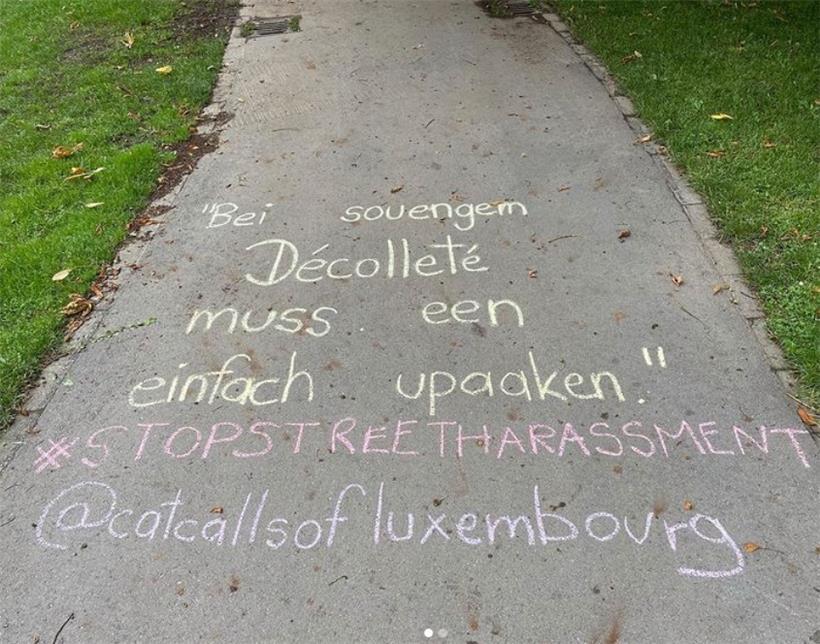 "Bei souengem
Décolleté
muss een
einfach upaaken."
#STOPSTREETHARASSMENT
@catcallsofluxembourg